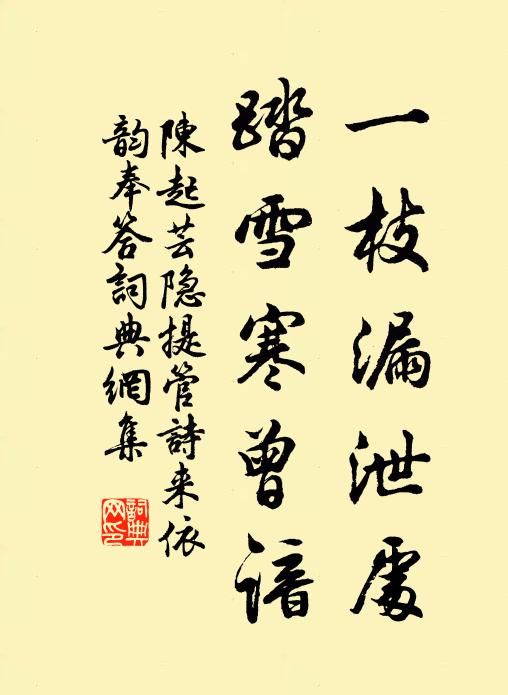 一枝漏泄處
踏雪寒曾諳
陳起芸隐提管詩来依
韵奉答詞典網集
詞典网印